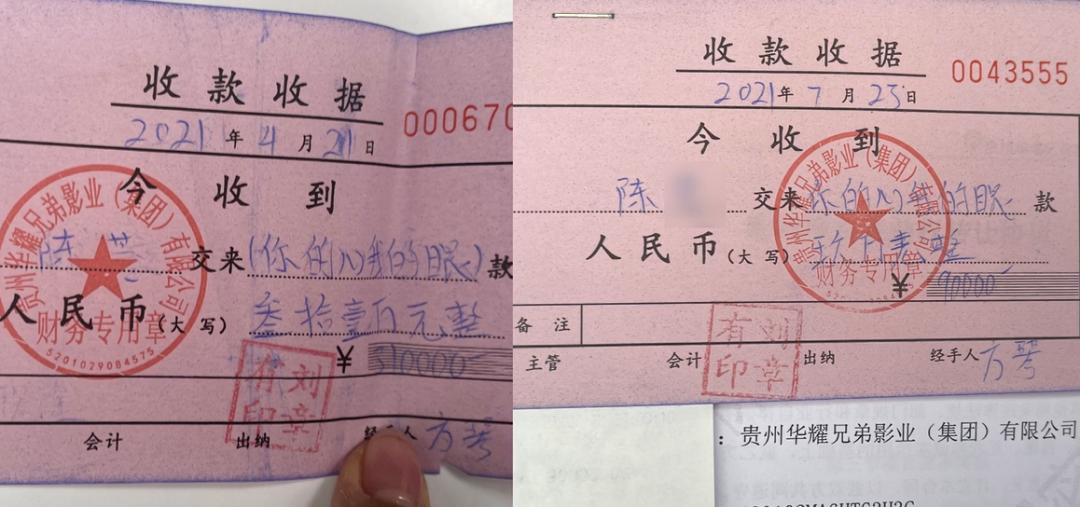 收款收据
000670
2021年4月21日
今收到
陈 交来(你的心我的眼)款
人民币(大写)叁拾壹万元整
¥310000
贵州华耀兄弟影业（集团）有限公司
财务专用章
5201029084575
有刘
印章
会计 出纳 经手人 方琴
收款收据
0043555
2021年7月23日
今收到
陈 交来 你的心我的眼 款
人民币(大写)玖万元整
¥90000
贵州华耀兄弟影业（集团）有限公司
财务专用章
备注
有刘
印章
主管 会计 出纳 经手人 方琴
：贵州华耀兄弟影业（集团）有限公司